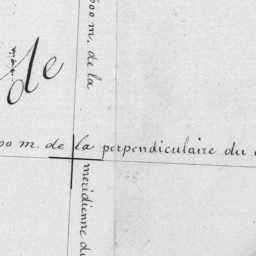 de
000 m. de la
00 m. de la perpendiculaire du
meridienne du